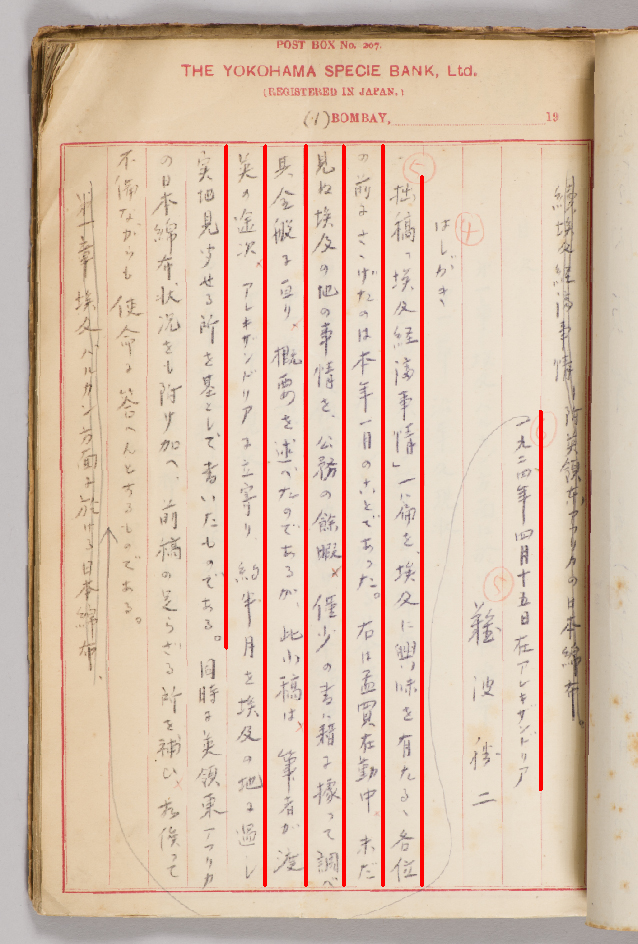 POST BOX No. 207.
THE YOKOHAMA SPECIE BANK, Ltd.
(REGISTERED IN JAPAN.)
(1) BOMBAY, 19
続埃及経済事情 附英領東アフリカの日本綿布。
一九二四年四月十五日在アレキサンドリア
難波勝二
はしがき
拙稿「埃及経済事情」一篇を、埃及に興味を有たるゝ各位
の前にさゝげたのは本年一月のことであった。右は孟買在勤中、未だ
見ぬ埃及の地の事情を、公務の餘暇、僅少の書籍に據って調べ
其全般に亘り、概要を述べたのであるが、此小稿は、筆者が渡
英の途次、アレキサンドリアに立寄り、約半月を埃及の地に過し
実地見聞せる所を基として書いたものである。同時に英領東アフリカ
の日本綿布状況をも附け加へ、前稿の足らざる所を補ひ、
不備ながらも使命に答へんとするものである。
第一章 埃及バルカン方面に於ける日本綿布、